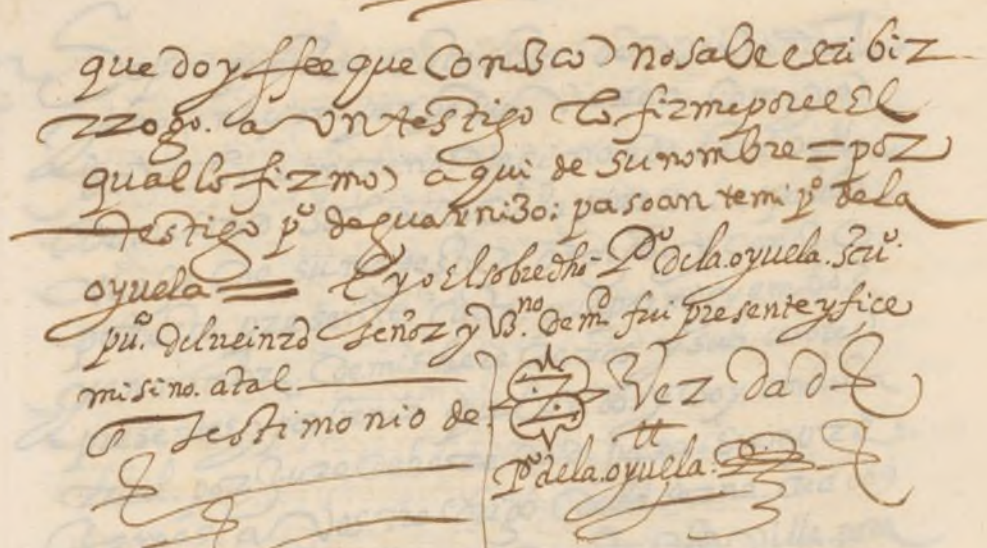 que doy ffee que Conozco no saVe escribir
rrogo. a Un testigo lo firme por el El
qual lo firmo aqui de su nombre = por
testigo pº de guarnizo: paso ante mi pº de la
oyuela = E yo El sobredho Pº de la. oyuela. scrivº.
puº. del rei nrº señor y Vº.no de md fui presente y fice
mi sino. atal
en testimonio de Verdad
Pº de la. oyuela.